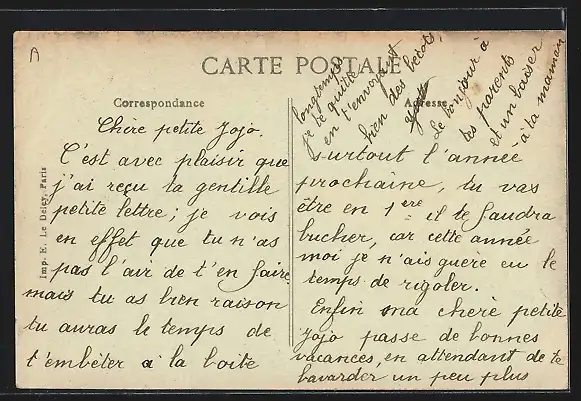 A
CARTE POSTALE
Correspondance
Adresse
Imp. E. Le Deley, Paris
Chère petite Jojo,
C'est avec plaisir que
j'ai reçu ta gentille
petite lettre; je vois
en effet que tu n'as
pas l'air de t'en faire
mais tu as bien raison
tu auras le temps de
t'embêter à la boite
surtout l'année
prochaine, tu vas
être en 1ère il te faudra
bucher, car cette année
moi je n'ais guère eu le
temps de rigoler.
Enfin ma chère petite
Jojo passe de bonnes
vacances, en attendant de te
bavarder un peu plus
longtemps
je te quitte
en t'envoyant
bien des bécots,
Le bonjour à
tes parents
et un baiser
à ta maman